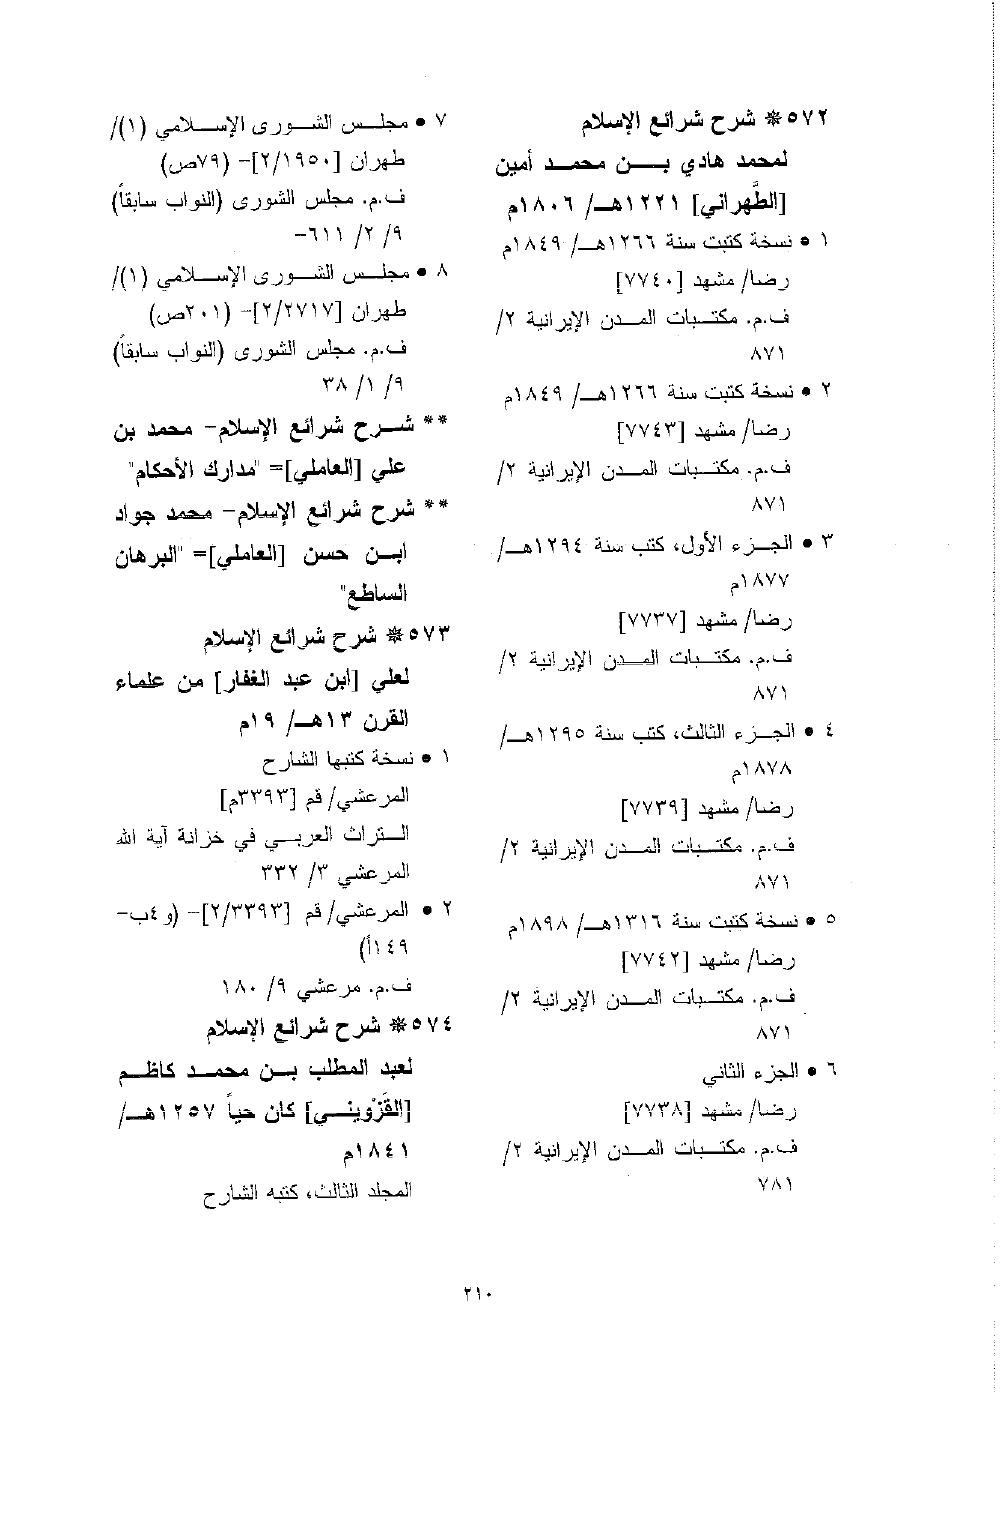 ٥٧٢* شرح شرائع الإسلام
لمحمد هادي بـــن محمـــد أمين
[الطَّهراني] ١٢٢١هــ/ ١٨٠٦م
١ • نسخة كتبت سنة ١٢٦٦هــ/ ١٨٤٩م
رضا/ مشهد [٧٧٤٠]
ف.م. مكتـــبات المـــدن الإيرانية ٢/
٨٧١
٢ • نسخة كتبت سنة ١٢٦٦هــ/ ١٨٤٩م
رضا/ مشهد [٧٧٤٣]
ف.م. مكتـــبات المـــدن الإيرانية ٢/
٨٧١
٣ • الجـــزء الأول، كتب سنة ١٢٩٤هــ/
١٨٧٧م
رضا/ مشهد [٧٧٣٧]
ف.م. مكتـــبات المـــدن الإيرانية ٢/
٨٧١
٤ • الجـــزء الثالث، كتب سنة ١٢٩٥هــ/
١٨٧٨م
رضا/ مشهد [٧٧٣٩]
ف.م. مكتـــبات المـــدن الإيرانية ٢/
٨٧١
٥ • نسخة كتبت سنة ١٣١٦هــ/ ١٨٩٨م
رضا/ مشهد [٧٧٤٢]
ف.م. مكتـــبات المـــدن الإيرانية ٢/
٨٧١
٦ • الجزء الثاني
رضا/ مشهد [٧٧٣٨]
ف.م. مكتـــبات المـــدن الإيرانية ٢/
٧٨١
٧ • مجلـــس الشـــورى الإســـلامي (١)/
طهران [٢/١٩٥٠]- (٧٩ص)
ف.م. مجلس الشورى (النواب سابقاً)
٩/ ٢/ ٦١١-
٨ • مجلـــس الشـــورى الإســـلامي (١)/
طهران [٢/٢٧١٧]- (٢٠١ص)
ف.م. مجلس الشورى (النواب سابقاً)
٩/ ١/ ٣٨
** شـــرح شرائع الإسلام- محمد بن
علي [العاملي]= "مدارك الأحكام"
** شرح شرائع الإسلام- محمد جواد
ابـــن حسن [العاملي]= "البرهان
الساطع"
٥٧٣* شرح شرائع الإسلام
لعلي [ابن عبد الغفار] من علماء
القرن ١٣هــ/ ١٩م
١ • نسخة كتبها الشارح
المرعشي/ قم [٣٣٩٣م]
الـــتراث العربـــي في خزانة آية الله
المرعشي ٣/ ٣٣٢
٢ • المرعشي/ قم [٢/٣٣٩٣]- (و٤ب-
١٤٩أ)
ف.م. مرعشي ٩/ ١٨٠
٥٧٤* شرح شرائع الإسلام
لعبد المطلب بـــن محمـــد كاظـــم
[القَزْوينـــي] كان حياً ١٢٥٧هــ/
١٨٤١م
المجلد الثالث، كتبه الشارح
٢١٠